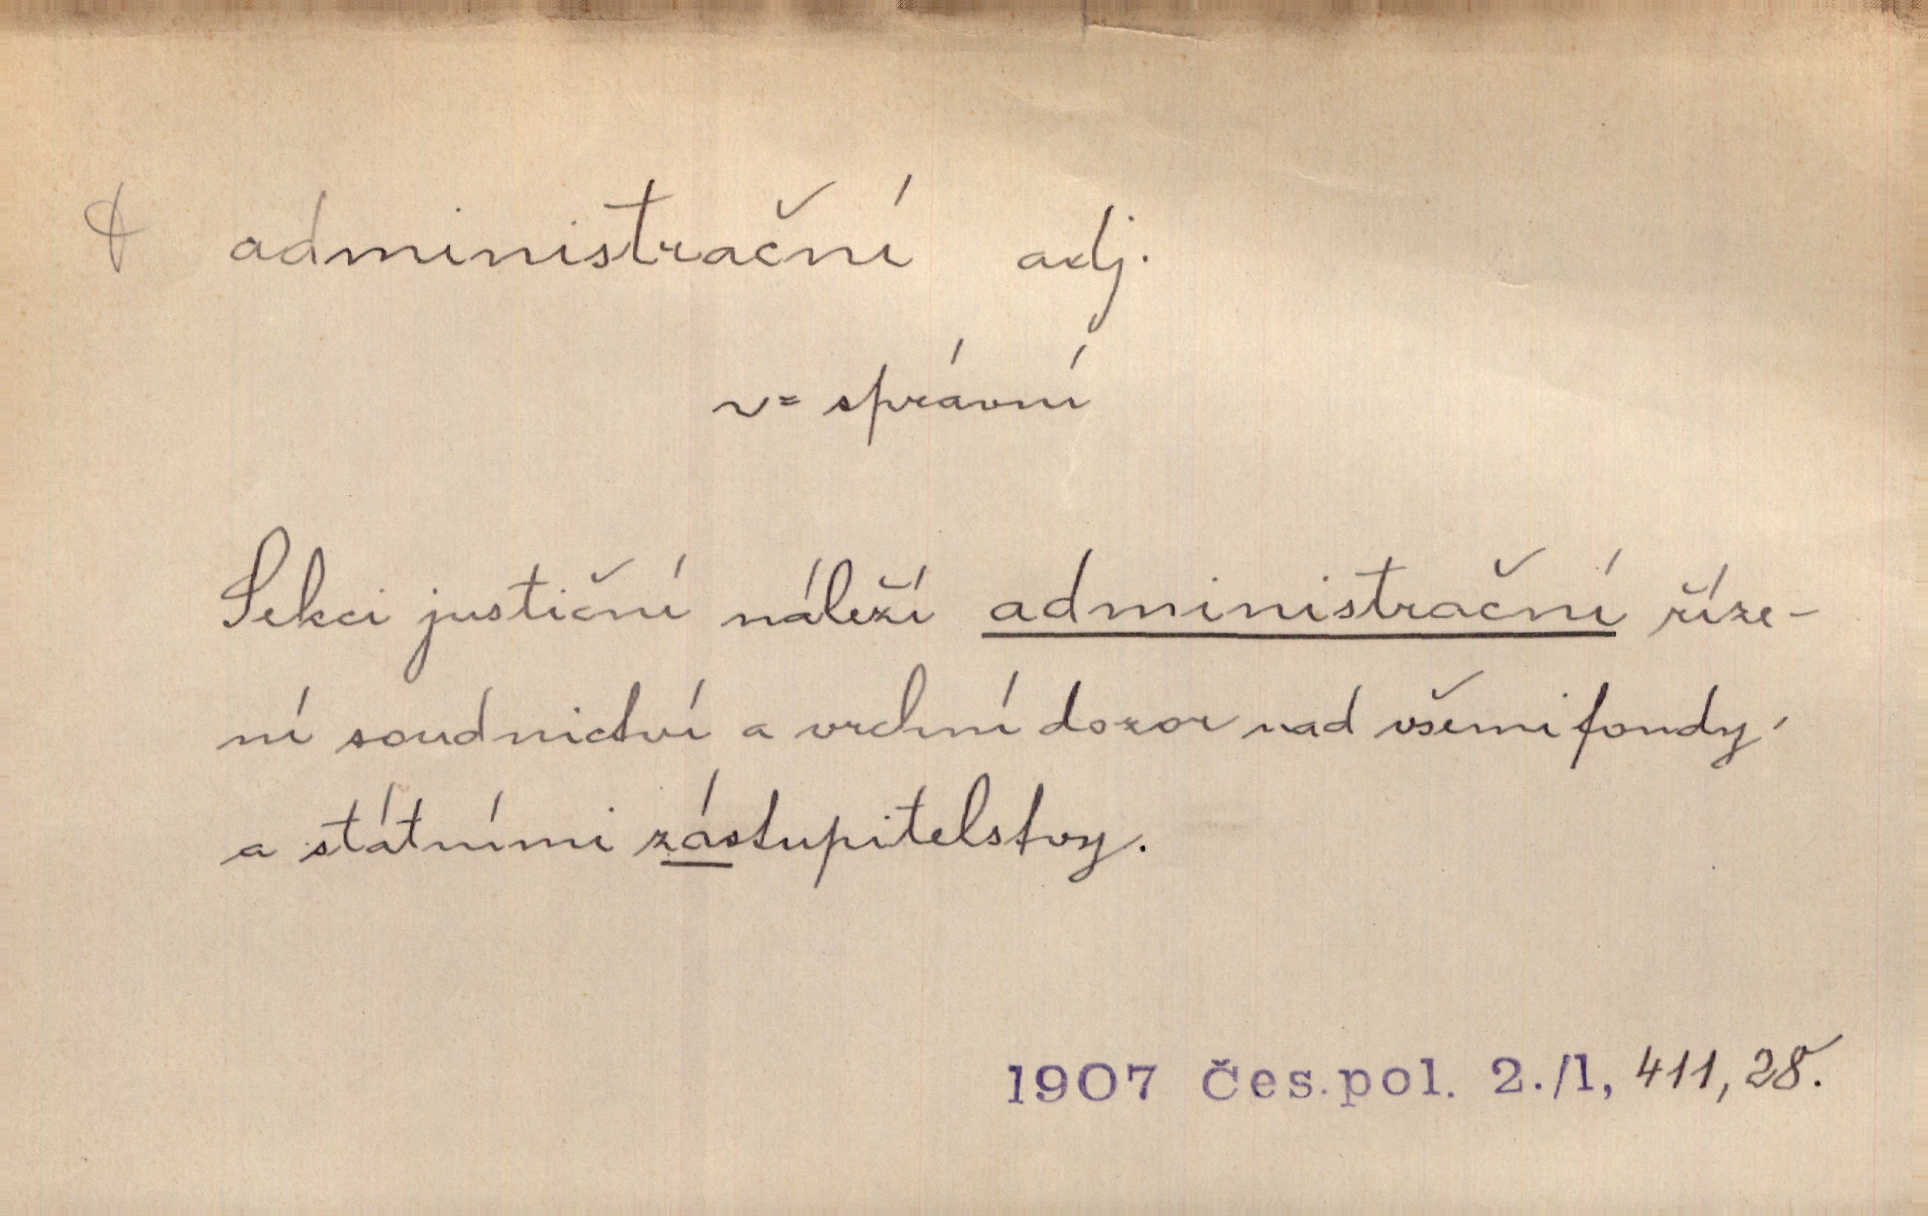 administrační adj.
v = správní
Sekci justiční náleží administrační říze-
ní soudnictví a vrchní dozor nad všemi fondy,
a státními zástupitelstvy.
1907 Čes. pol. 2./1, 411, 28.